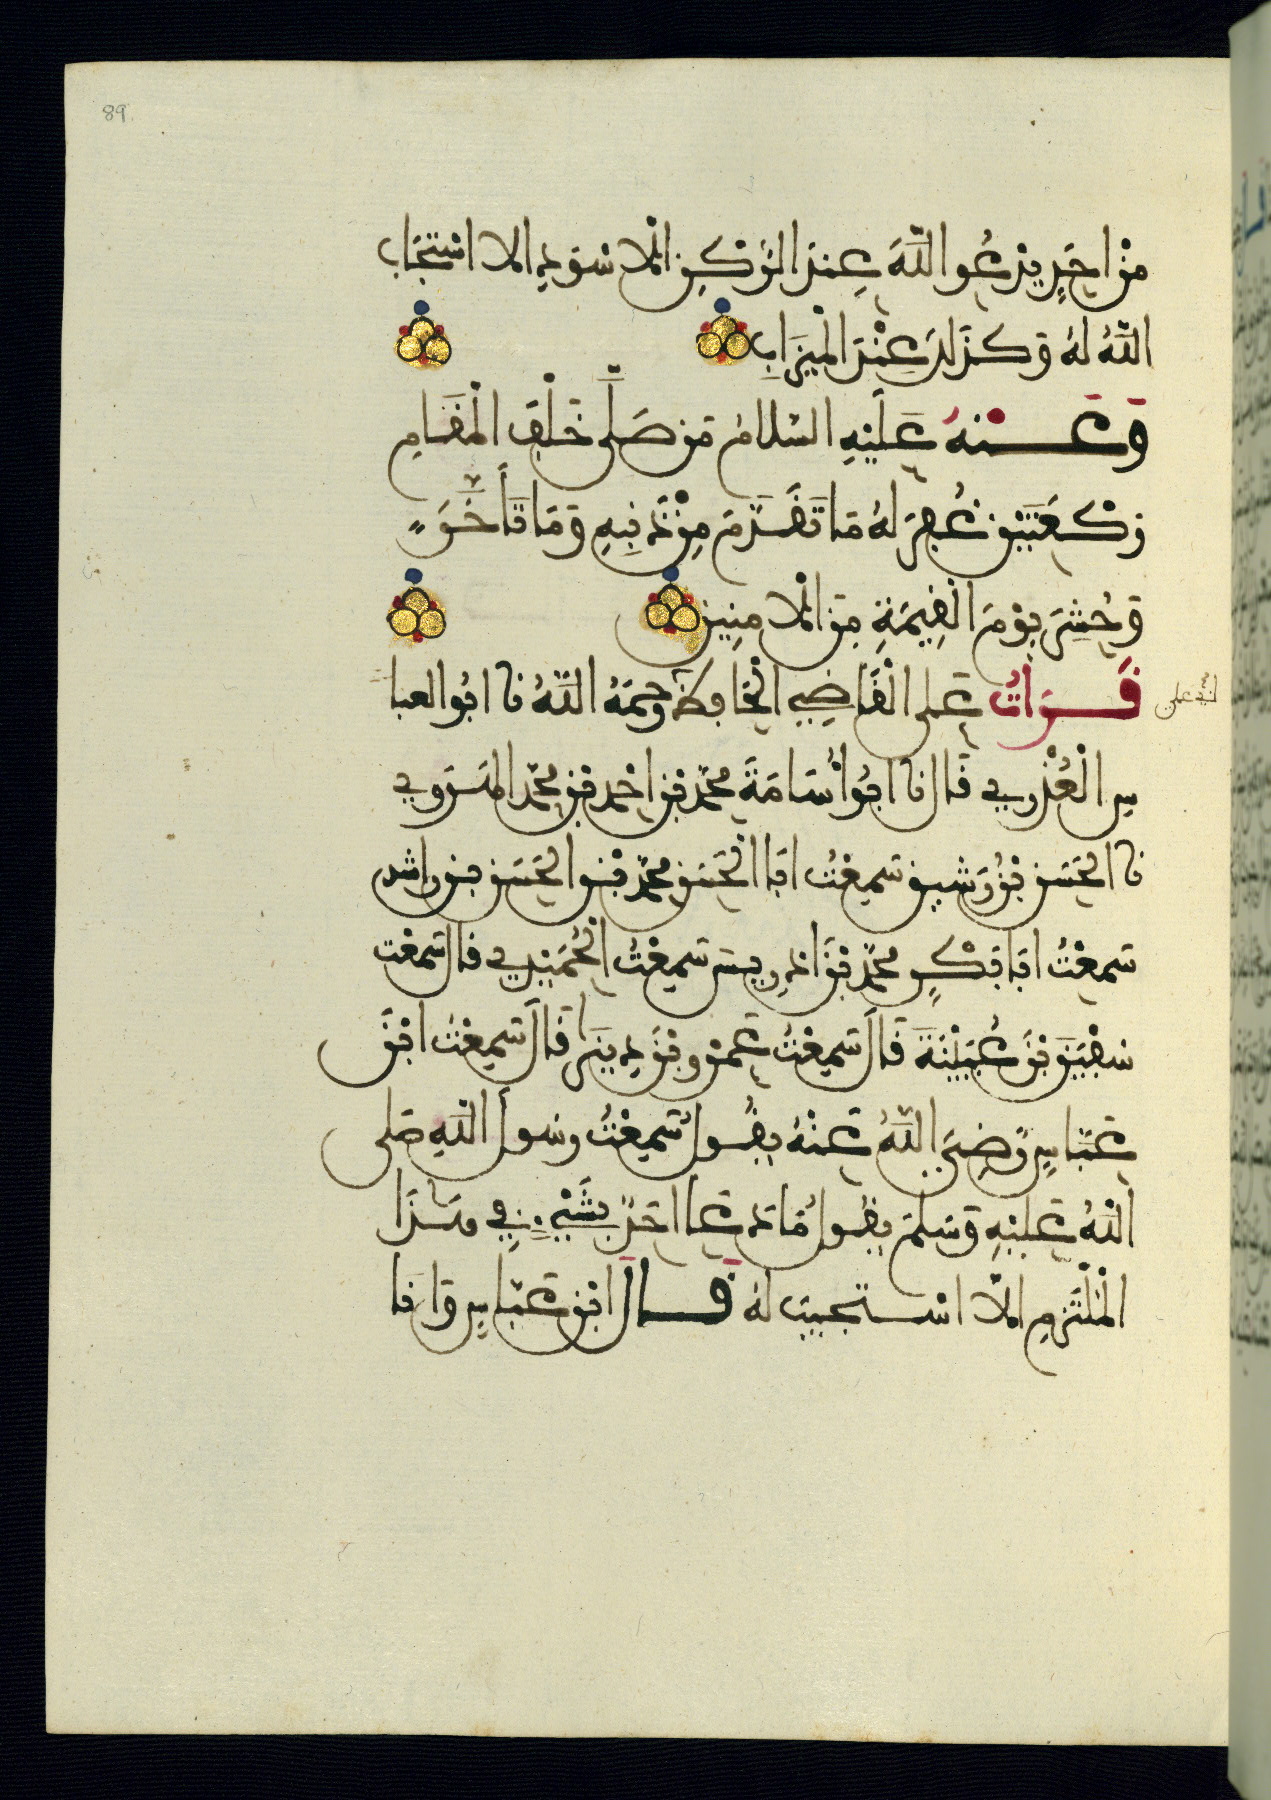 89
مِنْ اَحَدٍ يَدْعُو اللّٰهَ عِنْدَ الرُّكْنِ الْاَسْوَدِ اِلَّا اسْتَجَابَ
اللّٰهُ لَهُ وَكَذَلِكَ عِنْدَ الْمِيزَابِ
وَعَنْهُ عَلَيْهِ السَّلَامُ مَنْ صَلَّى خَلْفَ الْمَقَامِ
رَكْعَتَيْنِ غُفِرَ لَهُ مَا تَقَدَّمَ مِنْ ذَنْبِهِ وَمَا تَأَخَّرَ
وَحُشِرَ يَوْمَ الْقِيَمَةِ مِنَ الْاٰمِنِينَ
قَرَاتُ عَلَى الْقَاضِي الْحَافِظِ رَحِمَهُ اللّٰهُ نا ابُو العبا
سِ الْعُذْرِي قَال نا ابُو أُسَامَةَ مُحَمَّد بْن احْمد بْن مُحَمَّد الهَرَوِي
نا الْحَسَنُ بْنُ رَشِيق سَمِعْتُ ابَا الْحَسَنِ مُحَمَّد بْن الْحَسَنِ بن راشد
سَمِعْتُ ابَا بَكْرٍ مُحَمَّد بْنَ اِدْرِيسَ سَمِعْتُ الْحُمَيْدِي قال سَمِعْت
سُفْيَنَ بْنَ عُيَيْنَةَ قَالَ سَمِعْتُ عَمْرَو بْنَ دِينَارٍ قَالَ سَمِعْتُ ابْنَ
عَبَّاسٍ رَضِيَ اللّٰهُ عَنْهُ يَقُولُ سَمِعْتُ رسولَ اللّٰهِ صَلى
اللّٰهُ عَلَيْهِ وَسَلَّمَ يَقُولُ مَا دَعَا احَدٌ بِشَيْءٍ فِي هَذَا
الْمُلْتَزَمِ اِلَّا اسْتُجِيبَ لَهُ قَالَ ابْن عَبَّاسٍ وَانَا